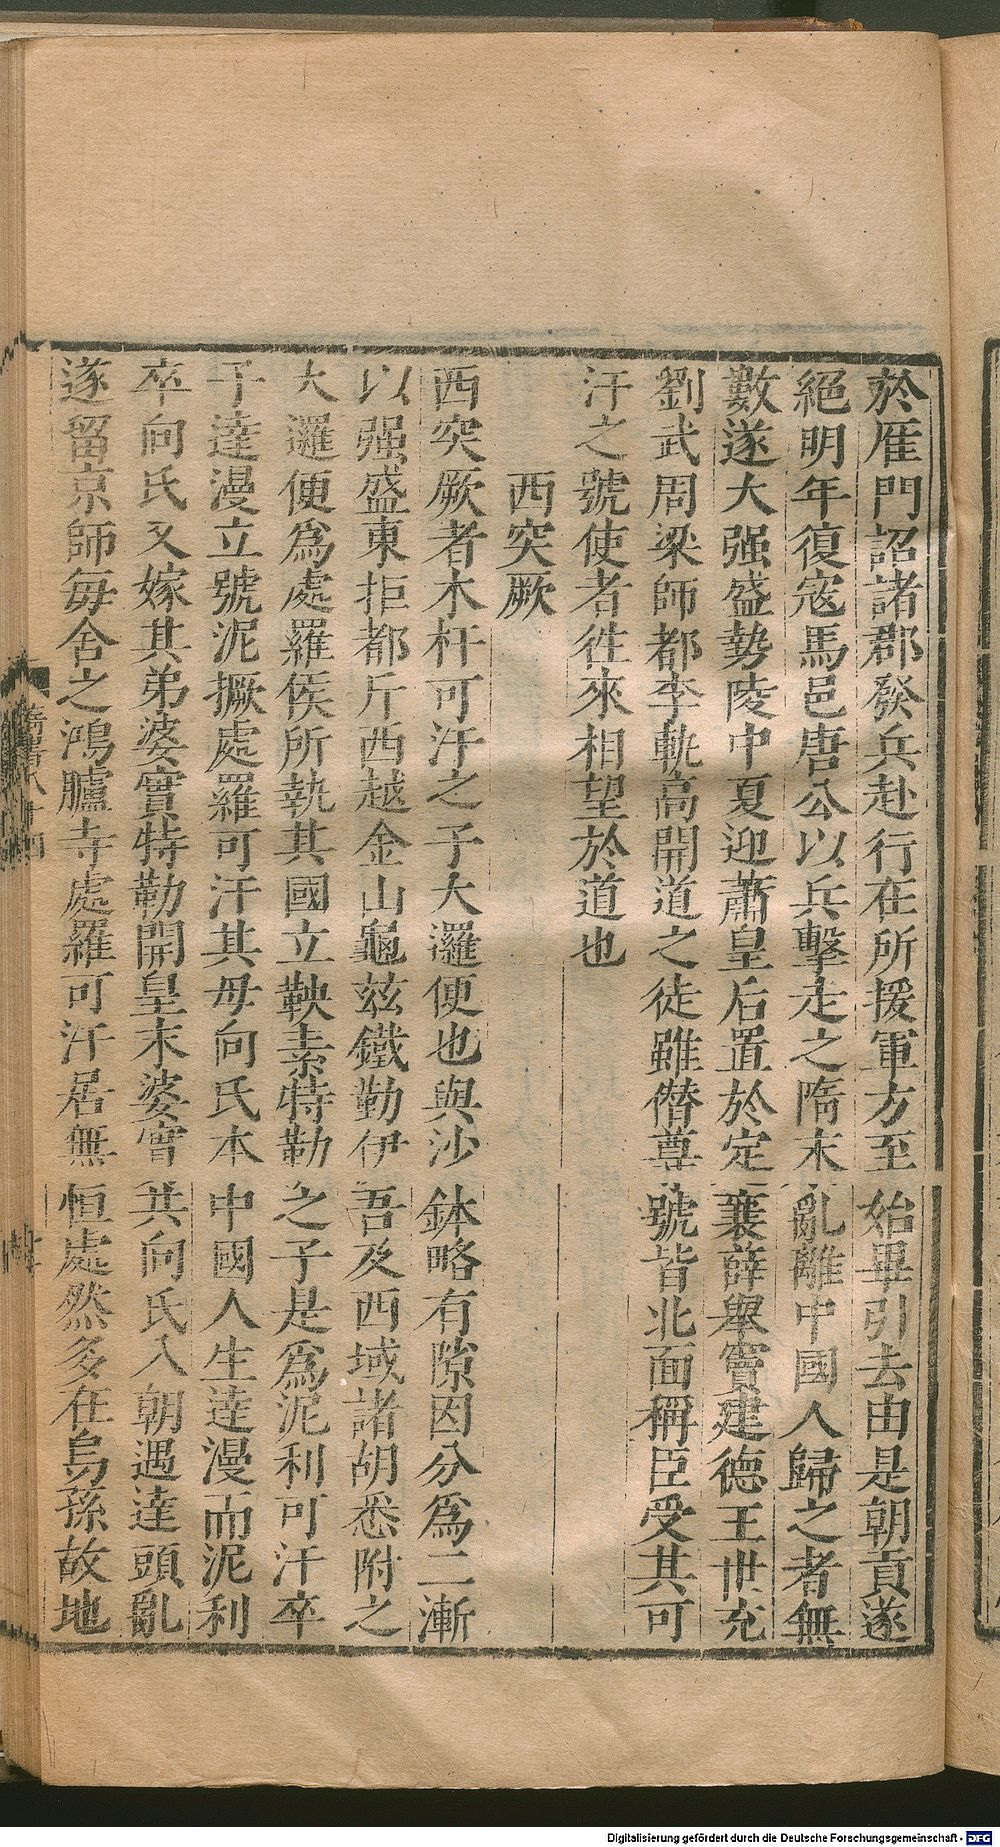 於雁門詔諸郡發兵赴行在所援軍方至始畢引去由是朝貢遂
絕明年復寇馬邑唐公以兵擊走之隋末亂離中國人歸之者無
數遂大强盛勢陵中夏迎蕭皇后置於定襄薛舉竇建德王世充
劉武周梁師都李軌高開道之徒雖僭尊號皆北面稱臣受其可
汗之號使者往來相望於道也
西突厥
西突厥者木杆可汗之子大邏便也與沙鉢略有隙因分爲二漸
以强盛東拒都斤西越金山龜兹鐵勒伊吾及西域諸胡悉附之
大邏便爲處羅侯所執其國立鞅素特勒之子是爲泥利可汗卒
子達漫立號泥撅處羅可汗其母向氏本中國人生達漫而泥利
卒向氏又嫁其弟婆實特勒開皇末婆實共向氏入朝遇達頭亂
遂留京師每舍之鴻臚寺處羅可汗居無恒處然多在烏孫故地
Digitalisierung gefördert durch die Deutsche Forschungsgemeinschaft - DFG